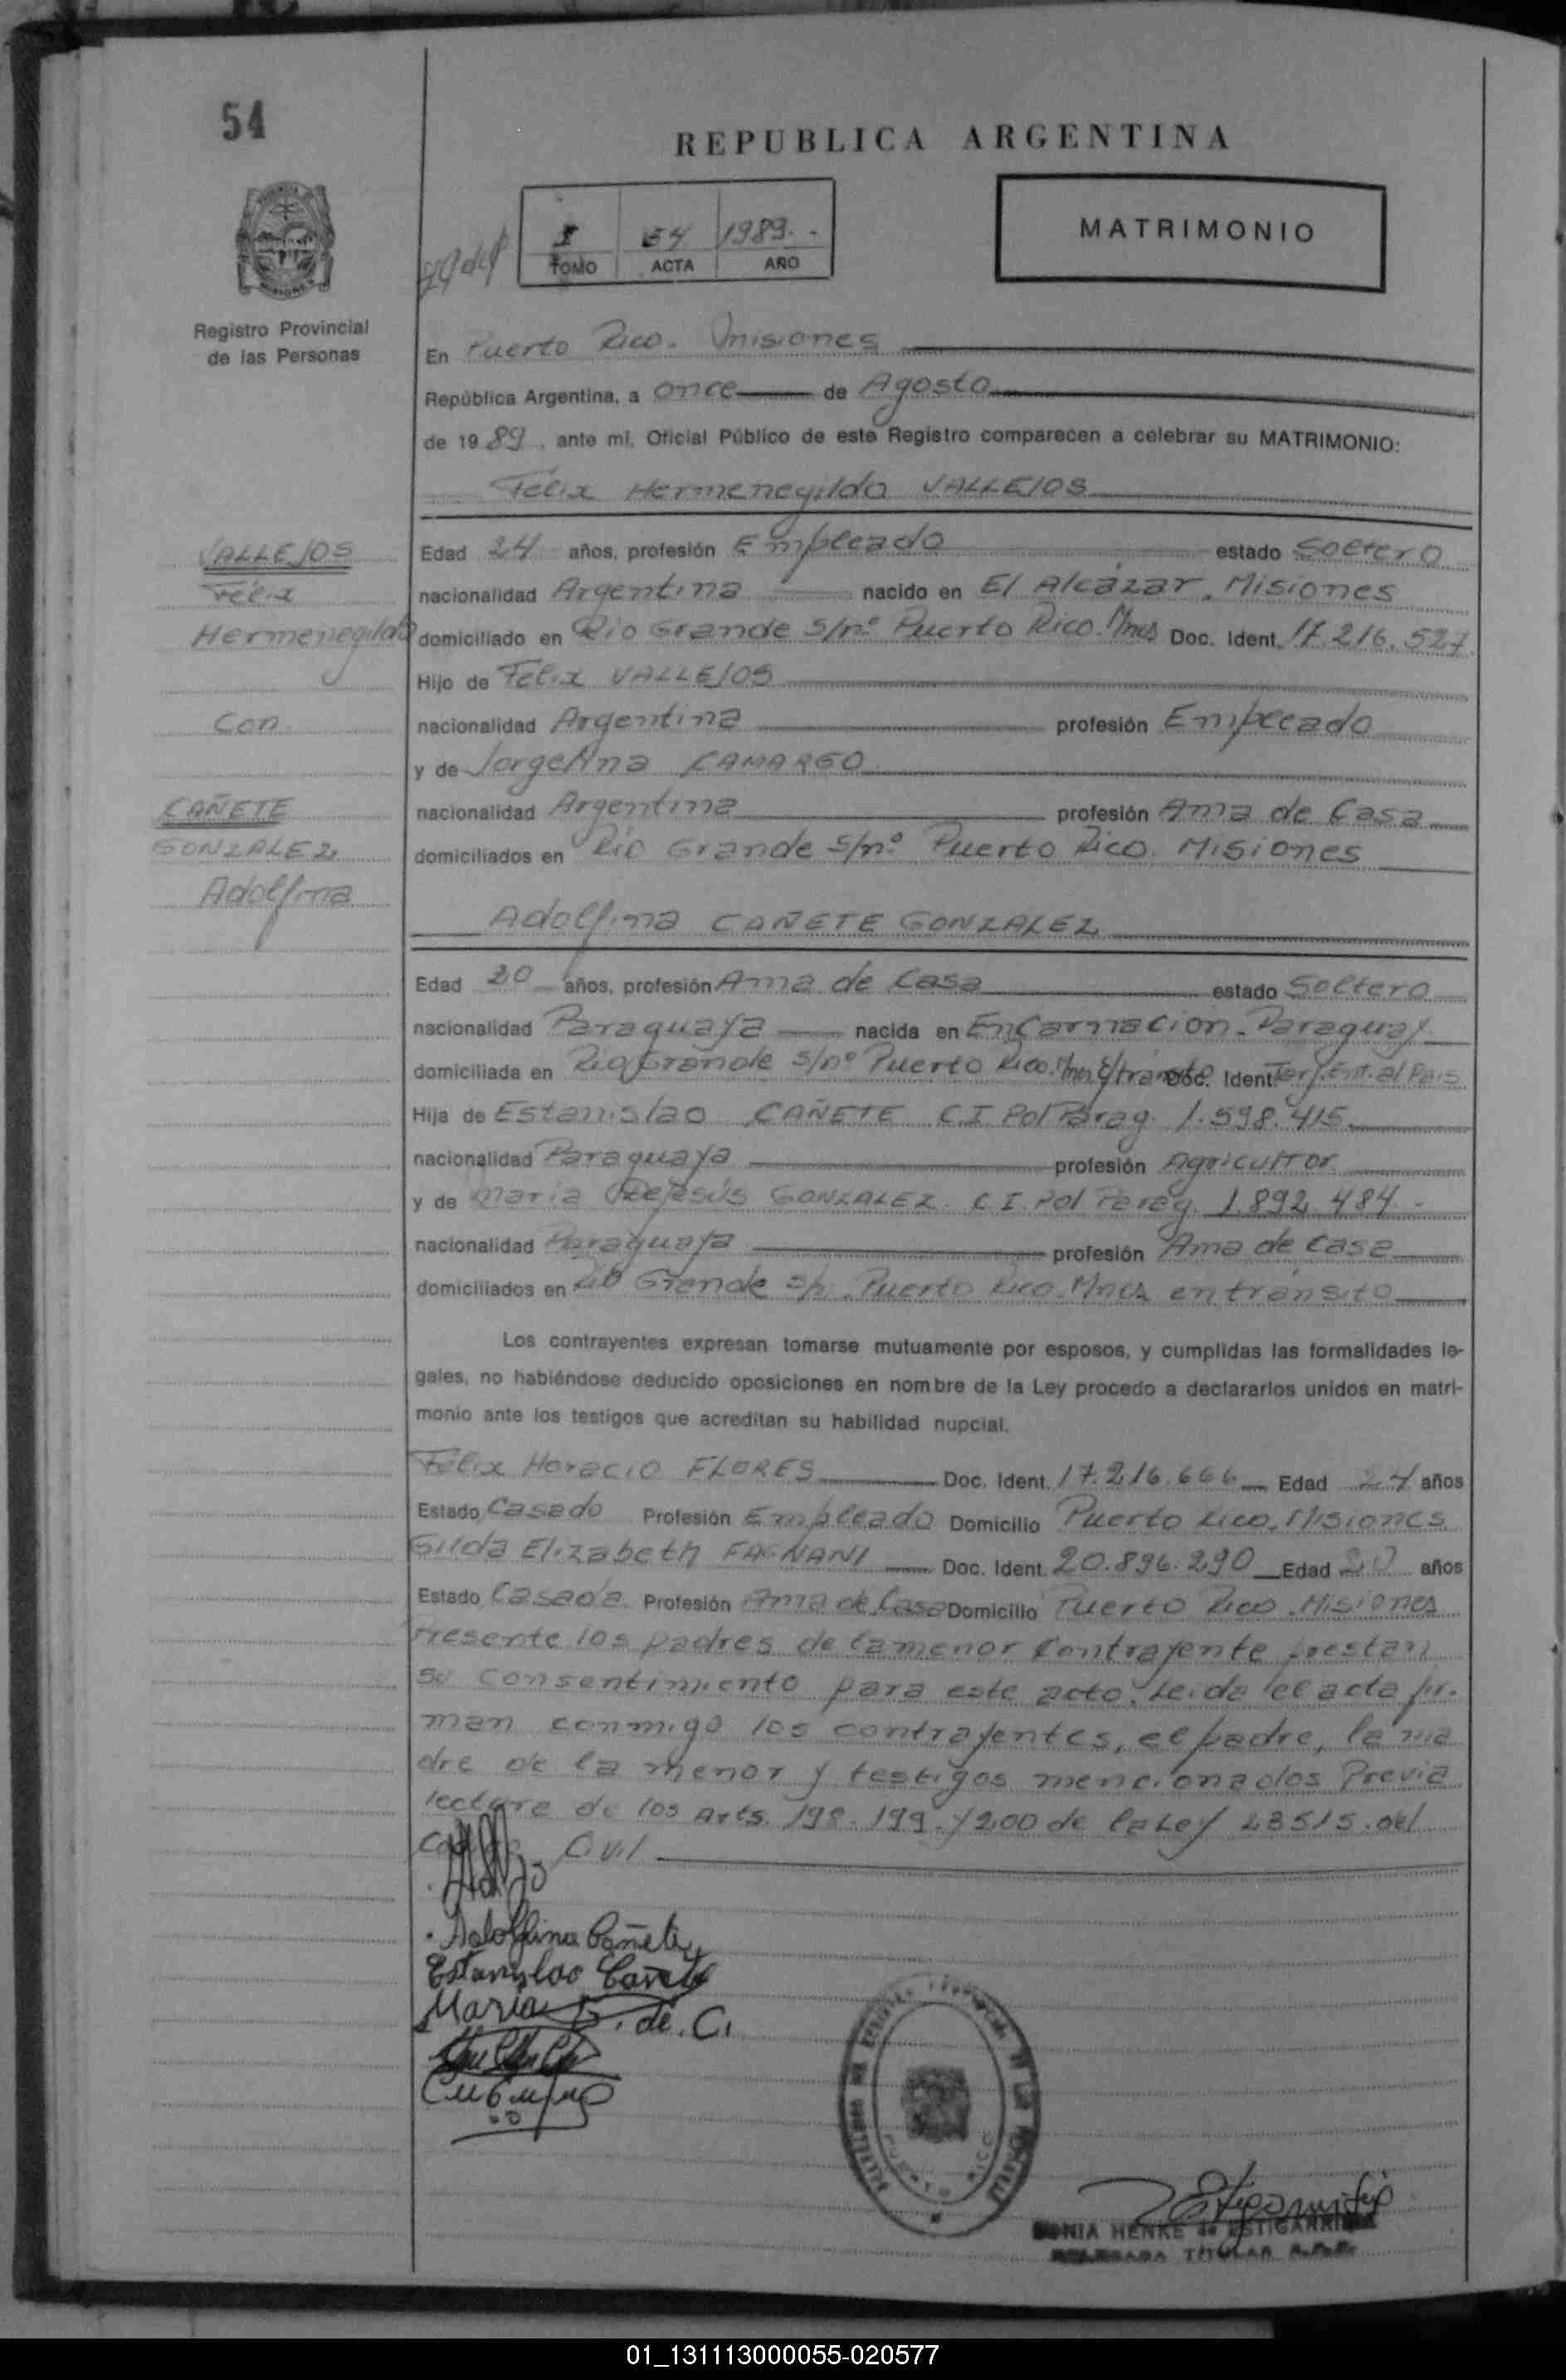 54
REPUBLICA ARGENTINA
I 54 1989.-
TOMO ACTA AÑO
MATRIMONIO
Registro Provincial
de las Personas
En Puerto Rico. Misiones
República Argentina, a once de Agosto
de 1989, ante mí, Oficial Público de este Registro comparecen a celebrar su MATRIMONIO:
Félix Hermenegildo VALLEJOS
VALLEJOS
Félix
Hermenegildo
Con
CAÑETE
GONZALEZ
Adolfina
Edad 24 años, profesión Empleado estado Soltero
nacionalidad Argentina nacido en El Alcázar. Misiones
domiciliado en Rio Grande S/nº Puerto Rico. Mnes Doc. Ident. 17.216.527
Hijo de Félix VALLEJOS
nacionalidad Argentina profesión Empleado
y de Jorgelina CAMARGO
nacionalidad Argentina profesión Ama de Casa
domiciliados en Rio Grande S/nº Puerto Rico. Misiones
Adolfina CAÑETE GONZALEZ
Edad 20 años, profesión Ama de Casa estado Soltero
nacionalidad Paraguaya nacida en Encarnacion - Paraguay
domiciliada en Rio Grande S/nº Puerto Rico. Mnes Doc. Ident. Tarj. Ent. al Pais
Hija de Estanislao CAÑETE C.I Pol Parag. 1.598.415
nacionalidad Paraguaya profesión Agricultor
y de Maria Dejesús GONZALEZ. C.I. Pol Parag. 1.892.484.-
nacionalidad Paraguaya profesión Ama de Casa
domiciliados en Rio Grande s/n. Puerto Rico. Mnes en tránsito
Los contrayentes expresan tomarse mutuamente por esposos, y cumplidas las formalidades le-
gales, no habiéndose deducido oposiciones en nombre de la Ley procedo a declararlos unidos en matri-
monio ante los testigos que acreditan su habilidad nupcial.
Félix Horacio FLORES Doc. Ident. 17.216.666 Edad 24 años
Estado Casado Profesión Empleado Domicilio Puerto Rico. Misiones
Gilda Elizabeth FAGNANI Doc. Ident. 20.896.290 Edad 20 años
Estado Casada Profesión Ama de Casa Domicilio Puerto Rico. Misiones
Presente los padres de la menor contrayente prestan
su consentimiento para este acto. Leida el acta fir-
man conmigo los contrayentes, el padre, la ma
dre de la menor y testigos mencionados Previa
lectura de los Arts. 198. 199. y 200 de la Ley 23515. del
Civil
Adolfina Cañete
Estanislao Cañete
Maria G. de. C.
PUERTO RICO
SONIA HENKE de ESTIGARRIBIA
DELEGADA TITULAR
01_131113000055-020577